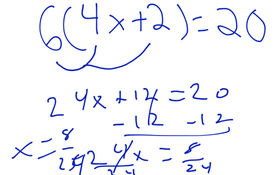 6(4x+2)=20
24x+12=20
-12 -12
x=8/24 24x/24=8/24